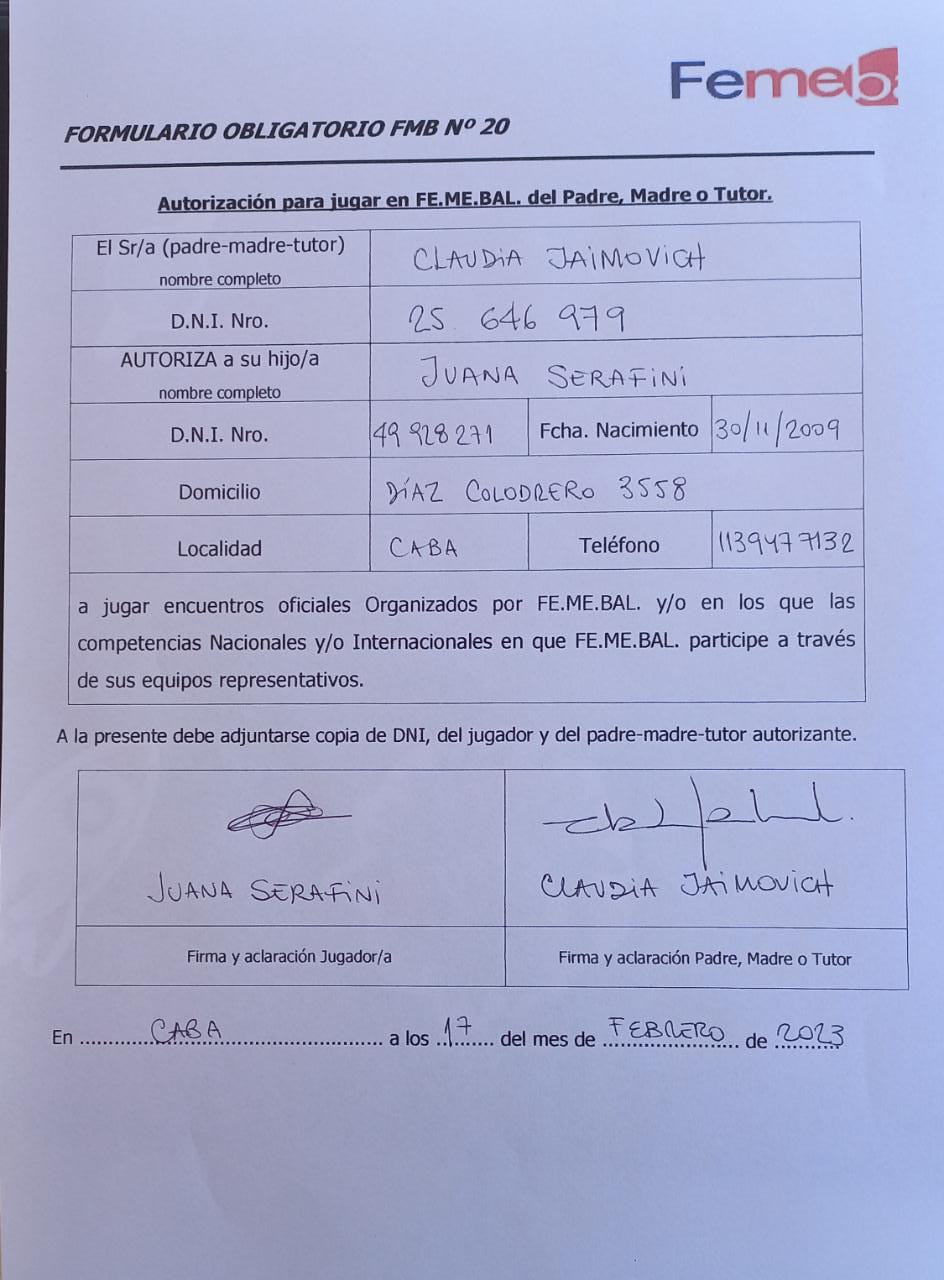 Femeb
FORMULARIO OBLIGATORIO FMB Nº 20
Autorización para jugar en FE.ME.BAL. del Padre, Madre o Tutor.
El Sr/a (padre-madre-tutor)
nombre completo
CLAUDiA JAiMOViCH
D.N.I. Nro.
25 646 979
AUTORIZA a su hijo/a
nombre completo
JUANA SERAFiNi
D.N.I. Nro.
49 928 271
Fcha. Nacimiento
30/11/2009
Domicilio
DíAZ COLODRERO 3558
Localidad
CABA
Teléfono
1139477132
a jugar encuentros oficiales Organizados por FE.ME.BAL. y/o en los que las
competencias Nacionales y/o Internacionales en que FE.ME.BAL. participe a través
de sus equipos representativos.
A la presente debe adjuntarse copia de DNI, del jugador y del padre-madre-tutor autorizante.
JUANA SERAFiNi
CLAUDiA JAiMOViCH
Firma y aclaración Jugador/a
Firma y aclaración Padre, Madre o Tutor
En ........CABA........ a los ..17.. del mes de ..FEBRERO.. de 2023